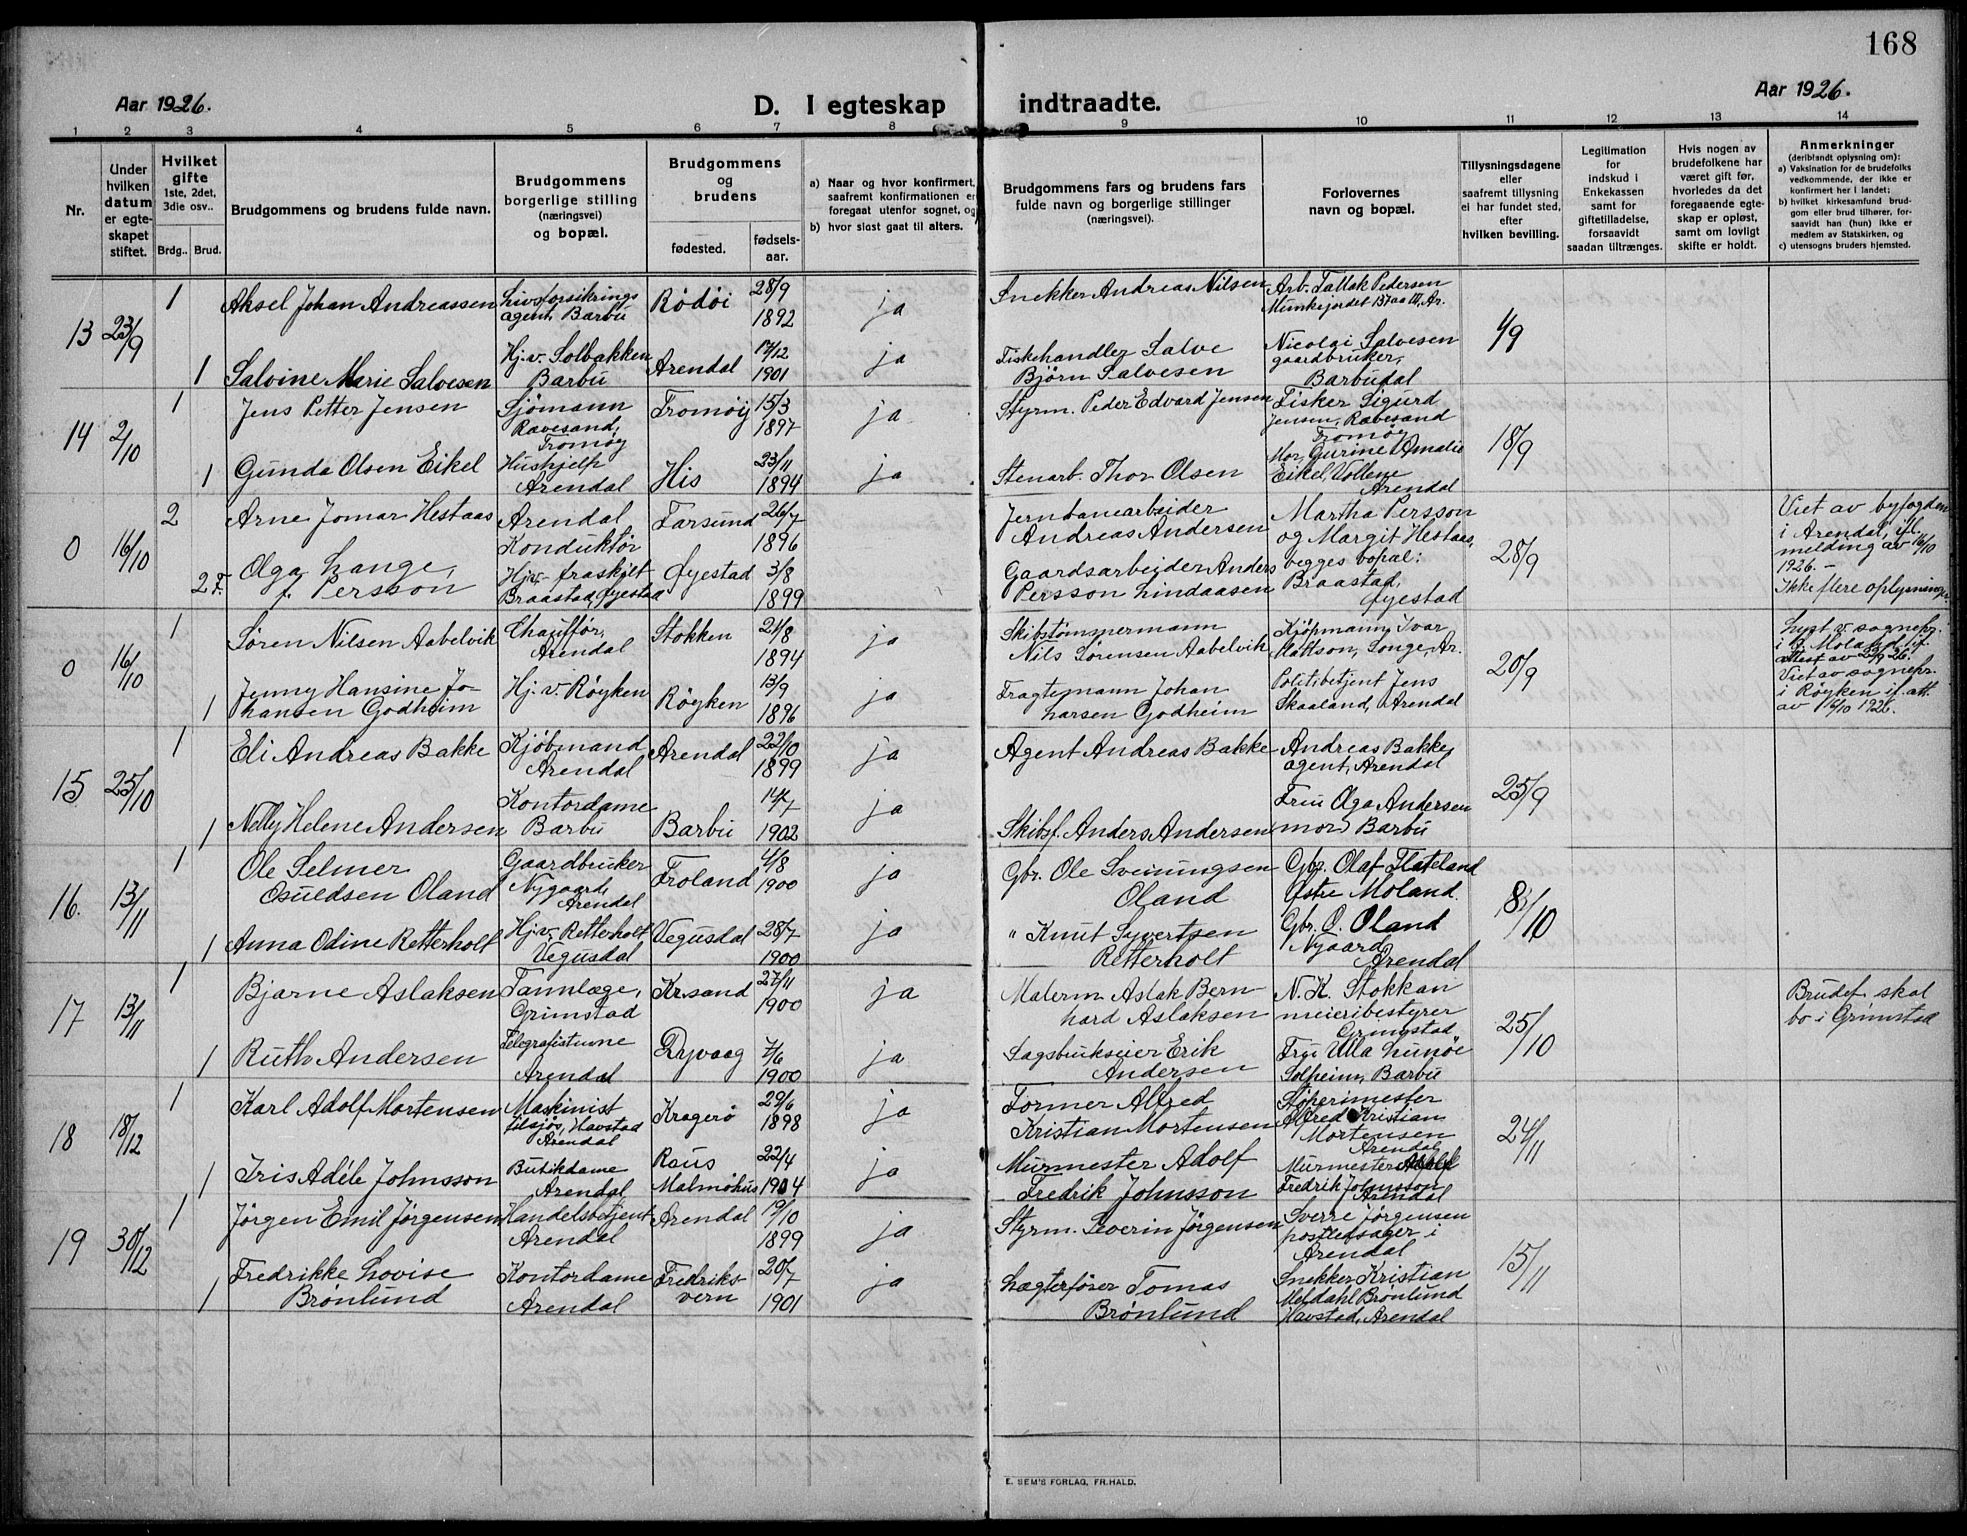 168
Aar 1926.
D. I egteskap indtraadte.
Aar 1926.
1 2 3 4 5 6 7 8 9 10 11 12 13 14
Nr.
Under hvilken datum er egteskapet stiftet.
Hvilket gifte 1ste, 2det, 3die osv..
Brdg.. Brud.
Brudgommens og brudens fulde navn.
Brudgommens borgerlige stilling (næringsvei) og bopæl.
Brudgommens og brudens
fødested.
fødsels-aar.
a) Naar og hvor konfirmert, saafremt konfirmationen er foregaat utenfor sognet, og
b) hvor sidst gaat til alters.
Brudgommens fars og brudens fars fulde navn og borgerlige stillinger (næringsvei).
Forlovernes navn og bopæl.
Tillysningsdagene eller saafremt tillysning ei har fundet sted, efter hvilken bevilling.
Legitimation for indskud i Enkekassen samt for giftetilladelse, forsaavidt saadan tiltrænges.
Hvis nogen av brudefolkene har været gift før, hvorledes da det foregaaende egteskap er opløst, samt om lovligt skifte er holdt.
Anmerkninger (deriblandt oplysning om):
a) Vaksination for de brudefolks vedkommende, der ikke er konfirmert her i landet;
b) hvilket kirkesamfund brudgom eller brud tilhører, forsaavidt han (hun) ikke er medlem av Statskirken, og
c) utensogns bruders hjemsted.
13 23/9 1 Aksel Johan Andreassen Livsforsikrings agent, Barbu Rödöi 28/9 1892 ja Snekker Andreas Nilsen Arb. Tallak Pedersen Munkejordet 137 aa III, Ar. 4/9
1 Salvine Marie Salvesen Hj. v. Solbakken Barbu Arendal 17/12 1901 ja Fiskehandler Salve Björn Salvesen Nicolai Salvesen gaardbruker, Barbudal
14 2/10 1 Jens Petter Jensen Sjömann Ravesand, Tromøy Tromøy 15/3 1897 ja Styrm. Peder Edvard Jensen Fisker Sigurd Jensen, Ravesand Tromøy 18/9
1 Gunda Olsen Eikel Hushjelp Arendal His 23/11 1894 ja Stenarb. Thor Olsen Mor, Gurine Amalie Eikel, Vollene Arendal
0 16/10 2 Arne Jomar Hestaas Arendal Konduktör Farsund 26/7 1896 Jernbanearbeider Andreas Andersen Martha Persson og Margit Hestaas, begges bopæl: Braastad, Øyestad 28/9 Viet av byfogden i Arendal, ifl. melding av 16/10 1926. - Ikke flere oplysninger.
2 F. Olga Lange, f. Persson Hj.v. fraskilt Braastad, Øyestad Øyestad 3/8 1899 Gaardsarbeider Anders Persson Lindaasen
0 16/10 1 Søren Nilsen Aabelvik Chauffør, Arendal Stokken 21/8 1894 ja Skibstømmermann Nils Sørensen Aabelvik Kjøpmann Ivar Mattson, Songe, Ar. 20/9 Lyst v. sognepr. i Ø. Moland, if. attest av 23/9 26. Viet av sognepr. i Røyken if. att. av 16/10 1926.
1 Jenny Hansine Johansen Godheim Hj. v. Røyken Røyken 13/9 1896 ja Fragtemann Johan Larsen Godheim Politibetjent Jens Skaaland, Arendal
15 25/10 1 Eli Andreas Bakke Kjöbmand Arendal Arendal 22/10 1899 ja Agent Andreas Bakke Andreas Bakke, agent, Arendal 25/9
1 Nelly Helene Andersen Kontordame Barbu Barbu 14/7 1902 ja Skibsf. Anders Andersen Fru Olga Andersen (mor) Barbu
16. 13/11 1 Ole Selmer Osuldsen Oland Gaardbruker Nygaard, Arendal Froland 4/8 1900 ja Gbr. Ole Sveinungsen Oland Gbr. Olaf Flateland Østre Moland. 8/10
1 Anna Odine Retterholt Hj. v. Retterholt Vegusdal Vegusdal 28/7 1900 ja " Knut Syvertsen Retterholt Gbr. O. Oland Nygaard, Arendal
17 13/11 1 Bjarne Aslaksen Tannlæge, Grimstad Kr.sand 27/11 1900 ja Malerm. Aslak Bernhard Aslaksen N. K. Stokkan meieribestyrer Grimstad 25/10 Brudef. skal bo i Grimstad
1 Ruth Andersen Telegrafistinne Arendal Dypvaag 7/6 1900 ja Sagbrukseier Erik Andersen Fru Ulla Lunöe Solheim, Barbu
18 18/12 1 Karl Adolf Mortensen Maskinist tilsjös, Havstad Arendal Kragerö 29/6 1898 ja Former Alfred Kristian Mortensen Støperimester Alfred Kristian Mortensen Arendal 24/11
1 Iris Adéle Johnsson Butikdame Arendal Raus Malmöhus 22/4 1904 ja Murmester Adolf Fredrik Johnsson Murmester Adolf Fredrik Johnsson Arendal
19 30/12 1 Jørgen Emil Jørgensen Handelsbetjent Arendal Arendal 19/10 1899 ja Styrm. Severin Jørgensen Sverre Jørgensen postledsager i Arendal 15/11
1 Fredrikke Lovise Brønlund Kontordame Arendal Fredriksvern 20/7 1901 ja Lægterfører Tomas Brønlund Snekker Kristian Meldahl Brønlund Havstad, Arendal
E. SEM'S FORLAG, FR.HALD.